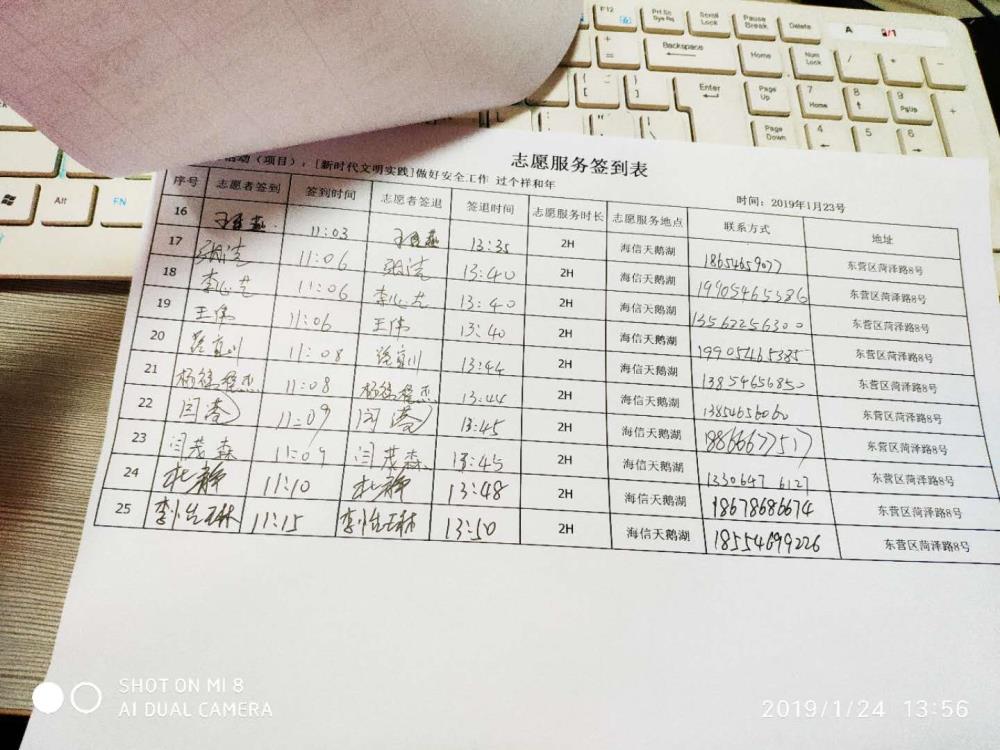 F12 Prt Sc Sys Rq Scroll Lock Pause Break Delete A
Backspace Home Num Lock / + -
Enter Page Up 7 Home 8 9 PgUp
Page Down 4 5 6
Alt FN
志愿服务签到表
活动（项目）：[新时代文明实践]做好安全工作 过个祥和年 时间：2019年1月23号
序号 志愿者签到 签到时间 志愿者签退 签退时间 志愿服务时长 志愿服务地点 联系方式 地址
16 11:03 13:35 2H 海信天鹅湖 18654659077 东营区菏泽路8号
17 张洁 11:06 张洁 13:40 2H 海信天鹅湖 19905465386 东营区菏泽路8号
18 李心艺 11:06 李心艺 13:40 2H 海信天鹅湖 13562256300 东营区菏泽路8号
19 王伟 11:06 王伟 13:40 2H 海信天鹅湖 19905465385 东营区菏泽路8号
20 11:08 13:44 2H 海信天鹅湖 13854656850 东营区菏泽路8号
21 11:08 13:44 2H 海信天鹅湖 13854656060 东营区菏泽路8号
22 11:09 13:45 2H 海信天鹅湖 18866677517 东营区菏泽路8号
23 闫茂森 11:09 闫茂森 13:45 2H 海信天鹅湖 13306476127 东营区菏泽路8号
24 杜静 11:10 杜静 13:48 2H 海信天鹅湖 18678686674 东营区菏泽路8号
25 11:15 13:50 2H 海信天鹅湖 18554699226 东营区菏泽路8号
SHOT ON MI 8
AI DUAL CAMERA
2019/1/24 13:56